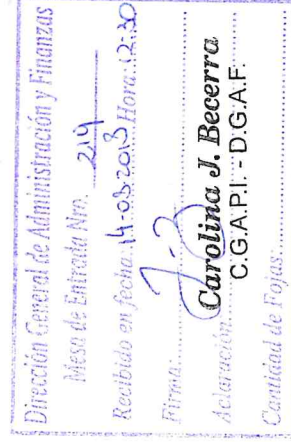 Dirección General de Administración y Finanzas
Mesa de Entrada Nro. 214
Recibido en fecha: 14-03-2013 Hora: 12:30
Firma:
Carolina J. Becerra
Aclaración: C.G.A.P.I. - D.G.A.F.
Cantidad de Fojas: